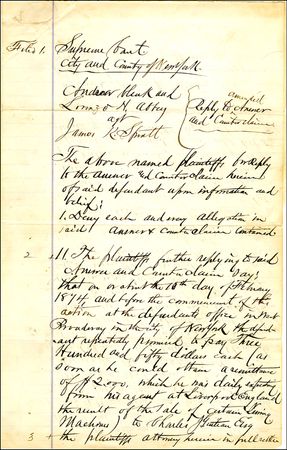 Folio 1.
Supreme Court
City and County of New York
Andrew Menk and
Lorenzo H Abbey
agt
James R Spratt
amended
Reply to Answer
and Counterclaim
The above named plaintiffs for Reply
to the answer and Counterclaim herein
of said defendant upon information and
belief:
1. Deny each and every allegation in
said answer & counterclaim contained.
2
11. The plaintiffs further replying to said
Answer and Counterclaim Say;
that on or about the 10th day of February
1874, and before the commencement of this
action at the defendants office in West
Broadway in the city of New York the defend-
ant repeatedly promised to pay Three
Hundred and fifty dollars each (as
soon as he could obtain a remittance
of $2000, which he was daily expecting
from his agent at Liverpool England
the result of the sale of certain Sewing
Machines) to Charles Esq
3
the plaintiffs attorney herein in full